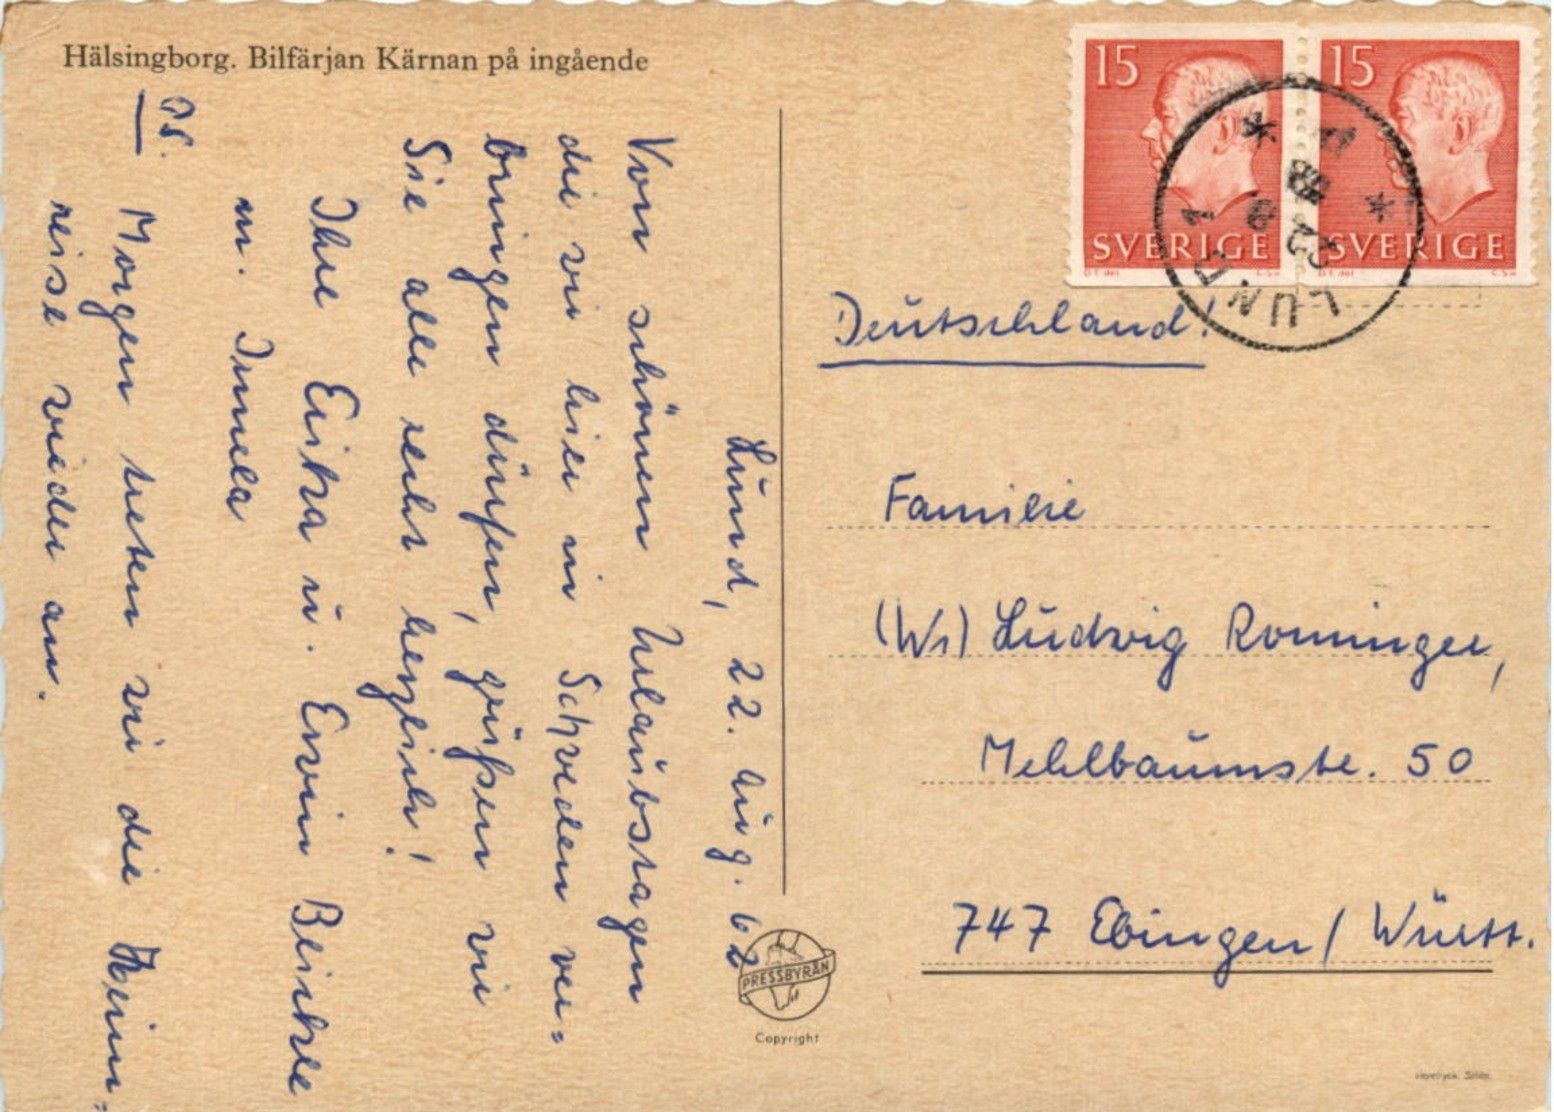 Hälsingborg. Bilfärjan Kärnan på ingående
Lund, 22. Aug. 62
Von schönen Urlaubstagen
die wir hier in Schweden ver=
bringen dürfen, grüßen wir
Sie alle recht herzlich!
Ihre Erika u. Erwin Bleikle
u.
PS.
Morgen treten wir die Heim=
reise wieder an.
15 15
SVERIGE SVERIGE
LUND 1
22 8
Deutschland!
Familie
Ludwig Rominger,
Mehlbaumstr. 50
747 Ebingen / Württ.
PRESSBYRÅN
Copyright